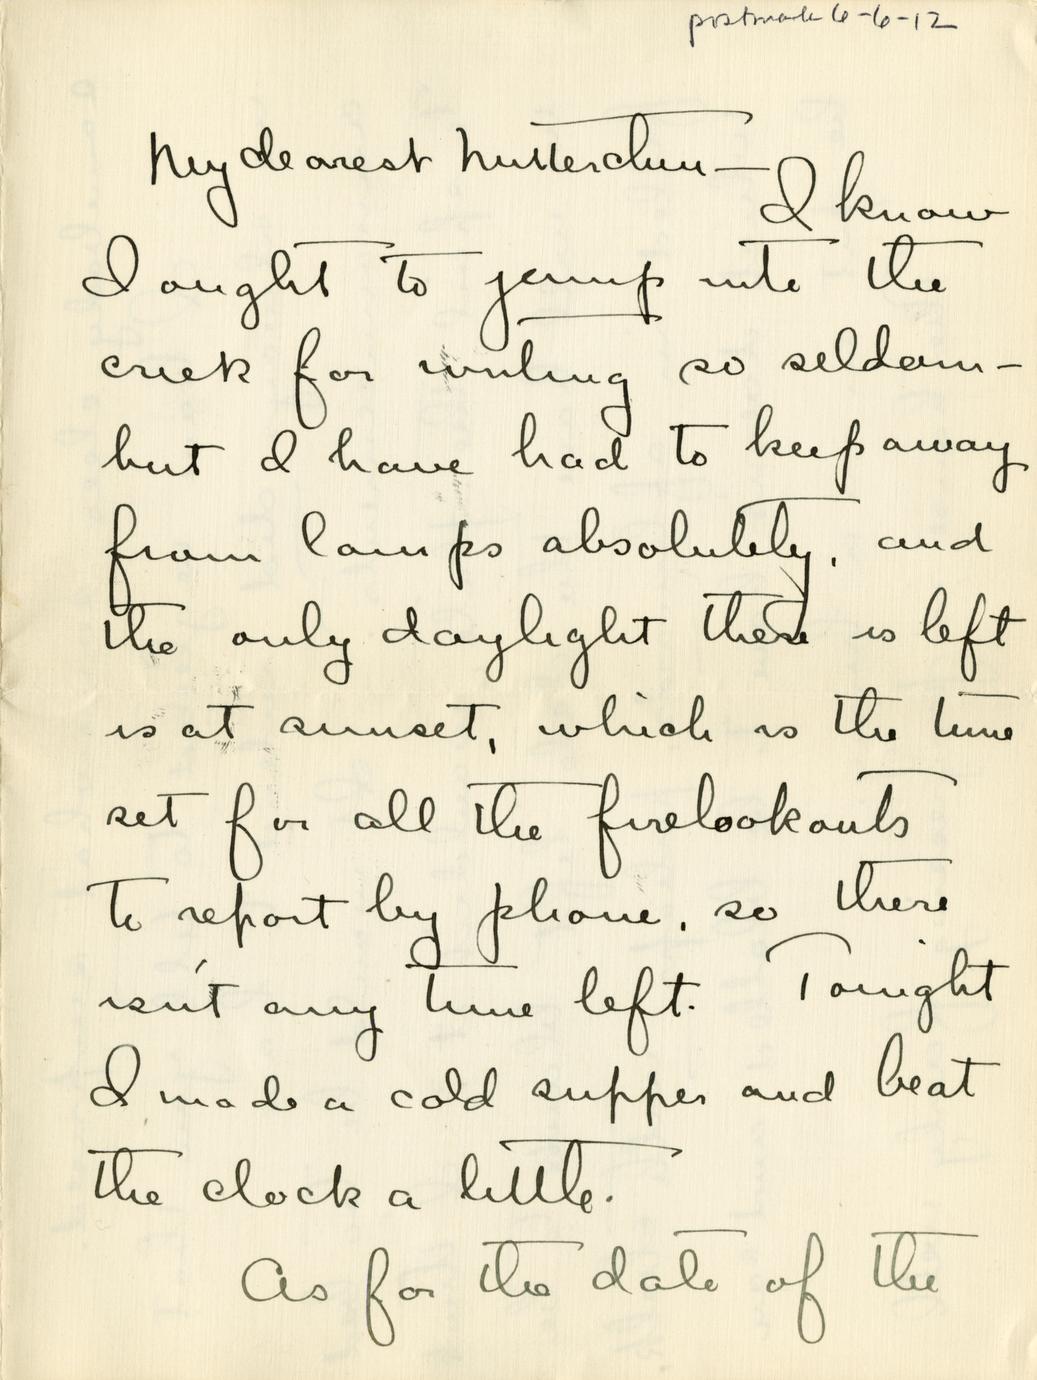 postmark 6-6-12
My dearest Mutterchen—
I know
I ought to jump into the
creek for writing so seldom—
but I have had to keep away
from lamps absolutely, and
the only daylight there is left
is at sunset, which is the time
set for all the firelookouts
to report by phone, so there
isn't any time left. Tonight
I made a cold supper and beat
the clock a little.
As for the date of the